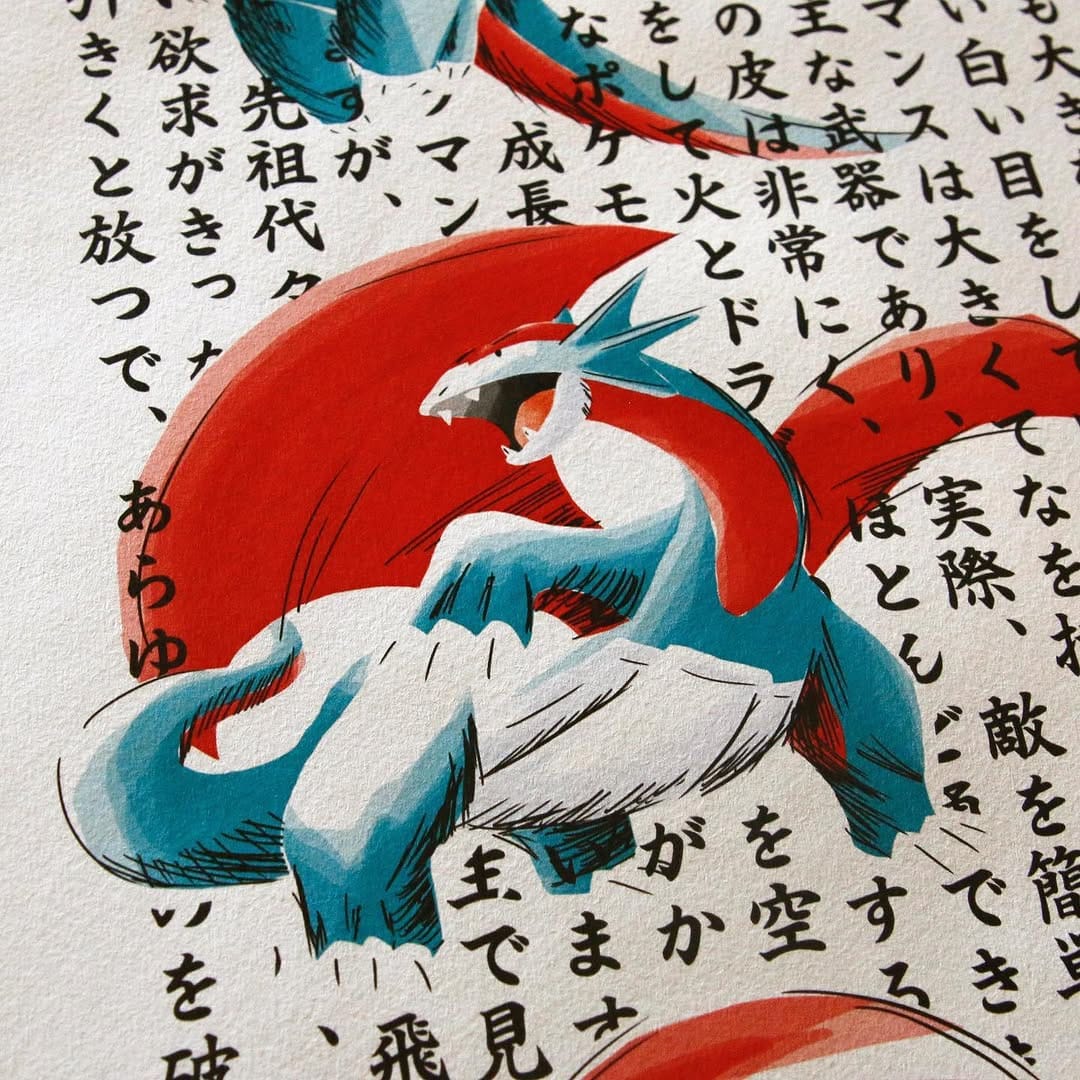 も大き
い白い目をし
マンスは大きくてなを
主な武器であり、実際、敵を簡単
の皮は非常にく、ほとん
でき
をして火とドラ
する
なポケモ
を空
成長
がか
マン
いま
すが、
主で見
先祖代
飛
欲求がきっな
、
きくと放つで、あらゆ
いを破